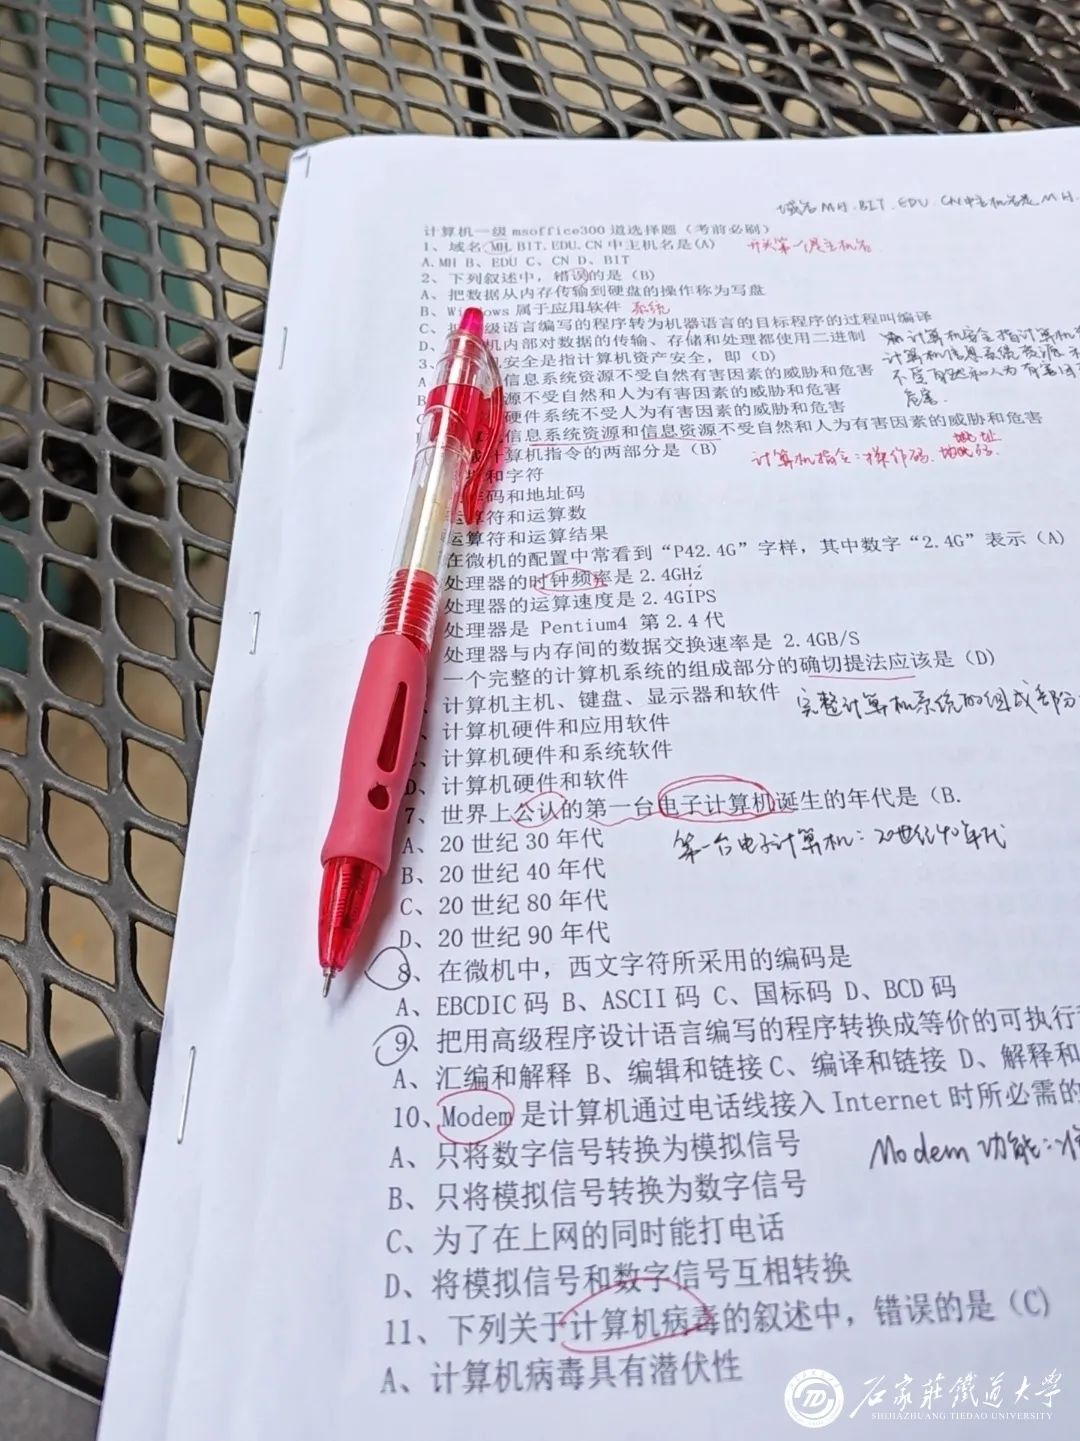 域名MH.BIT.EDU.CN中主机名是M.H.
计算机一级 msoffice300 道选择题（考前必刷）
1、域名 MH.BIT.EDU.CN 中主机名是(A) 开头第一是主机名
A.MH B、EDU C、CN D、BIT
2、下列叙述中，错误的是（B）
A、把数据从内存传输到硬盘的操作称为写盘
B、Windows 属于应用软件 系统
C、 级语言编写的程序转为机器语言的目标程序的过程叫编译
D、 机内部对数据的传输、存储和处理都使用二进制
计算机安全指计算机
3、 机安全是指计算机资产安全，即（D）
计算机信息系统资源
A 信息系统资源不受自然有害因素的威胁和危害
不受自然和人为有害
B 源不受自然和人为有害因素的威胁和危害
危害.
C 硬件系统不受人为有害因素的威胁和危害
信息系统资源和信息资源不受自然和人为有害因素的威胁和危害
计算机指令的两部分是（B）
计算机指令：操作码、地址码
地址
和字符
码和地址码
运算符和运算数
运算符和运算结果
在微机的配置中常看到“P42.4G”字样，其中数字“2.4G”表示（A）
处理器的时钟频率是 2.4GHz
处理器的运算速度是 2.4GIPS
处理器是 Pentium4 第 2.4 代
处理器与内存间的数据交换速率是 2.4GB/S
一个完整的计算机系统的组成部分的确切提法应该是（D）
计算机主机、键盘、显示器和软件
完整计算机系统的组成部分
计算机硬件和应用软件
计算机硬件和系统软件
D、计算机硬件和软件
7、世界上公认的第一台电子计算机诞生的年代是（B.
A、20 世纪 30 年代
第一台电子计算机：20世纪40年代
B、20 世纪 40 年代
C、20 世纪 80 年代
D、20 世纪 90 年代
8、在微机中，西文字符所采用的编码是
A、EBCDIC 码 B、ASCII 码 C、国标码 D、BCD 码
9、把用高级程序设计语言编写的程序转换成等价的可执行
A、汇编和解释 B、编辑和链接 C、编译和链接 D、解释和
10、Modem 是计算机通过电话线接入 Internet 时所必需的
A、只将数字信号转换为模拟信号
Modem 功能：
B、只将模拟信号转换为数字信号
C、为了在上网的同时能打电话
D、将模拟信号和数字信号互相转换
11、下列关于计算机病毒的叙述中，错误的是（C）
A、计算机病毒具有潜伏性
石家莊鐵道大学
SHIJIAZHUANG TIEDAO UNIVERSITY